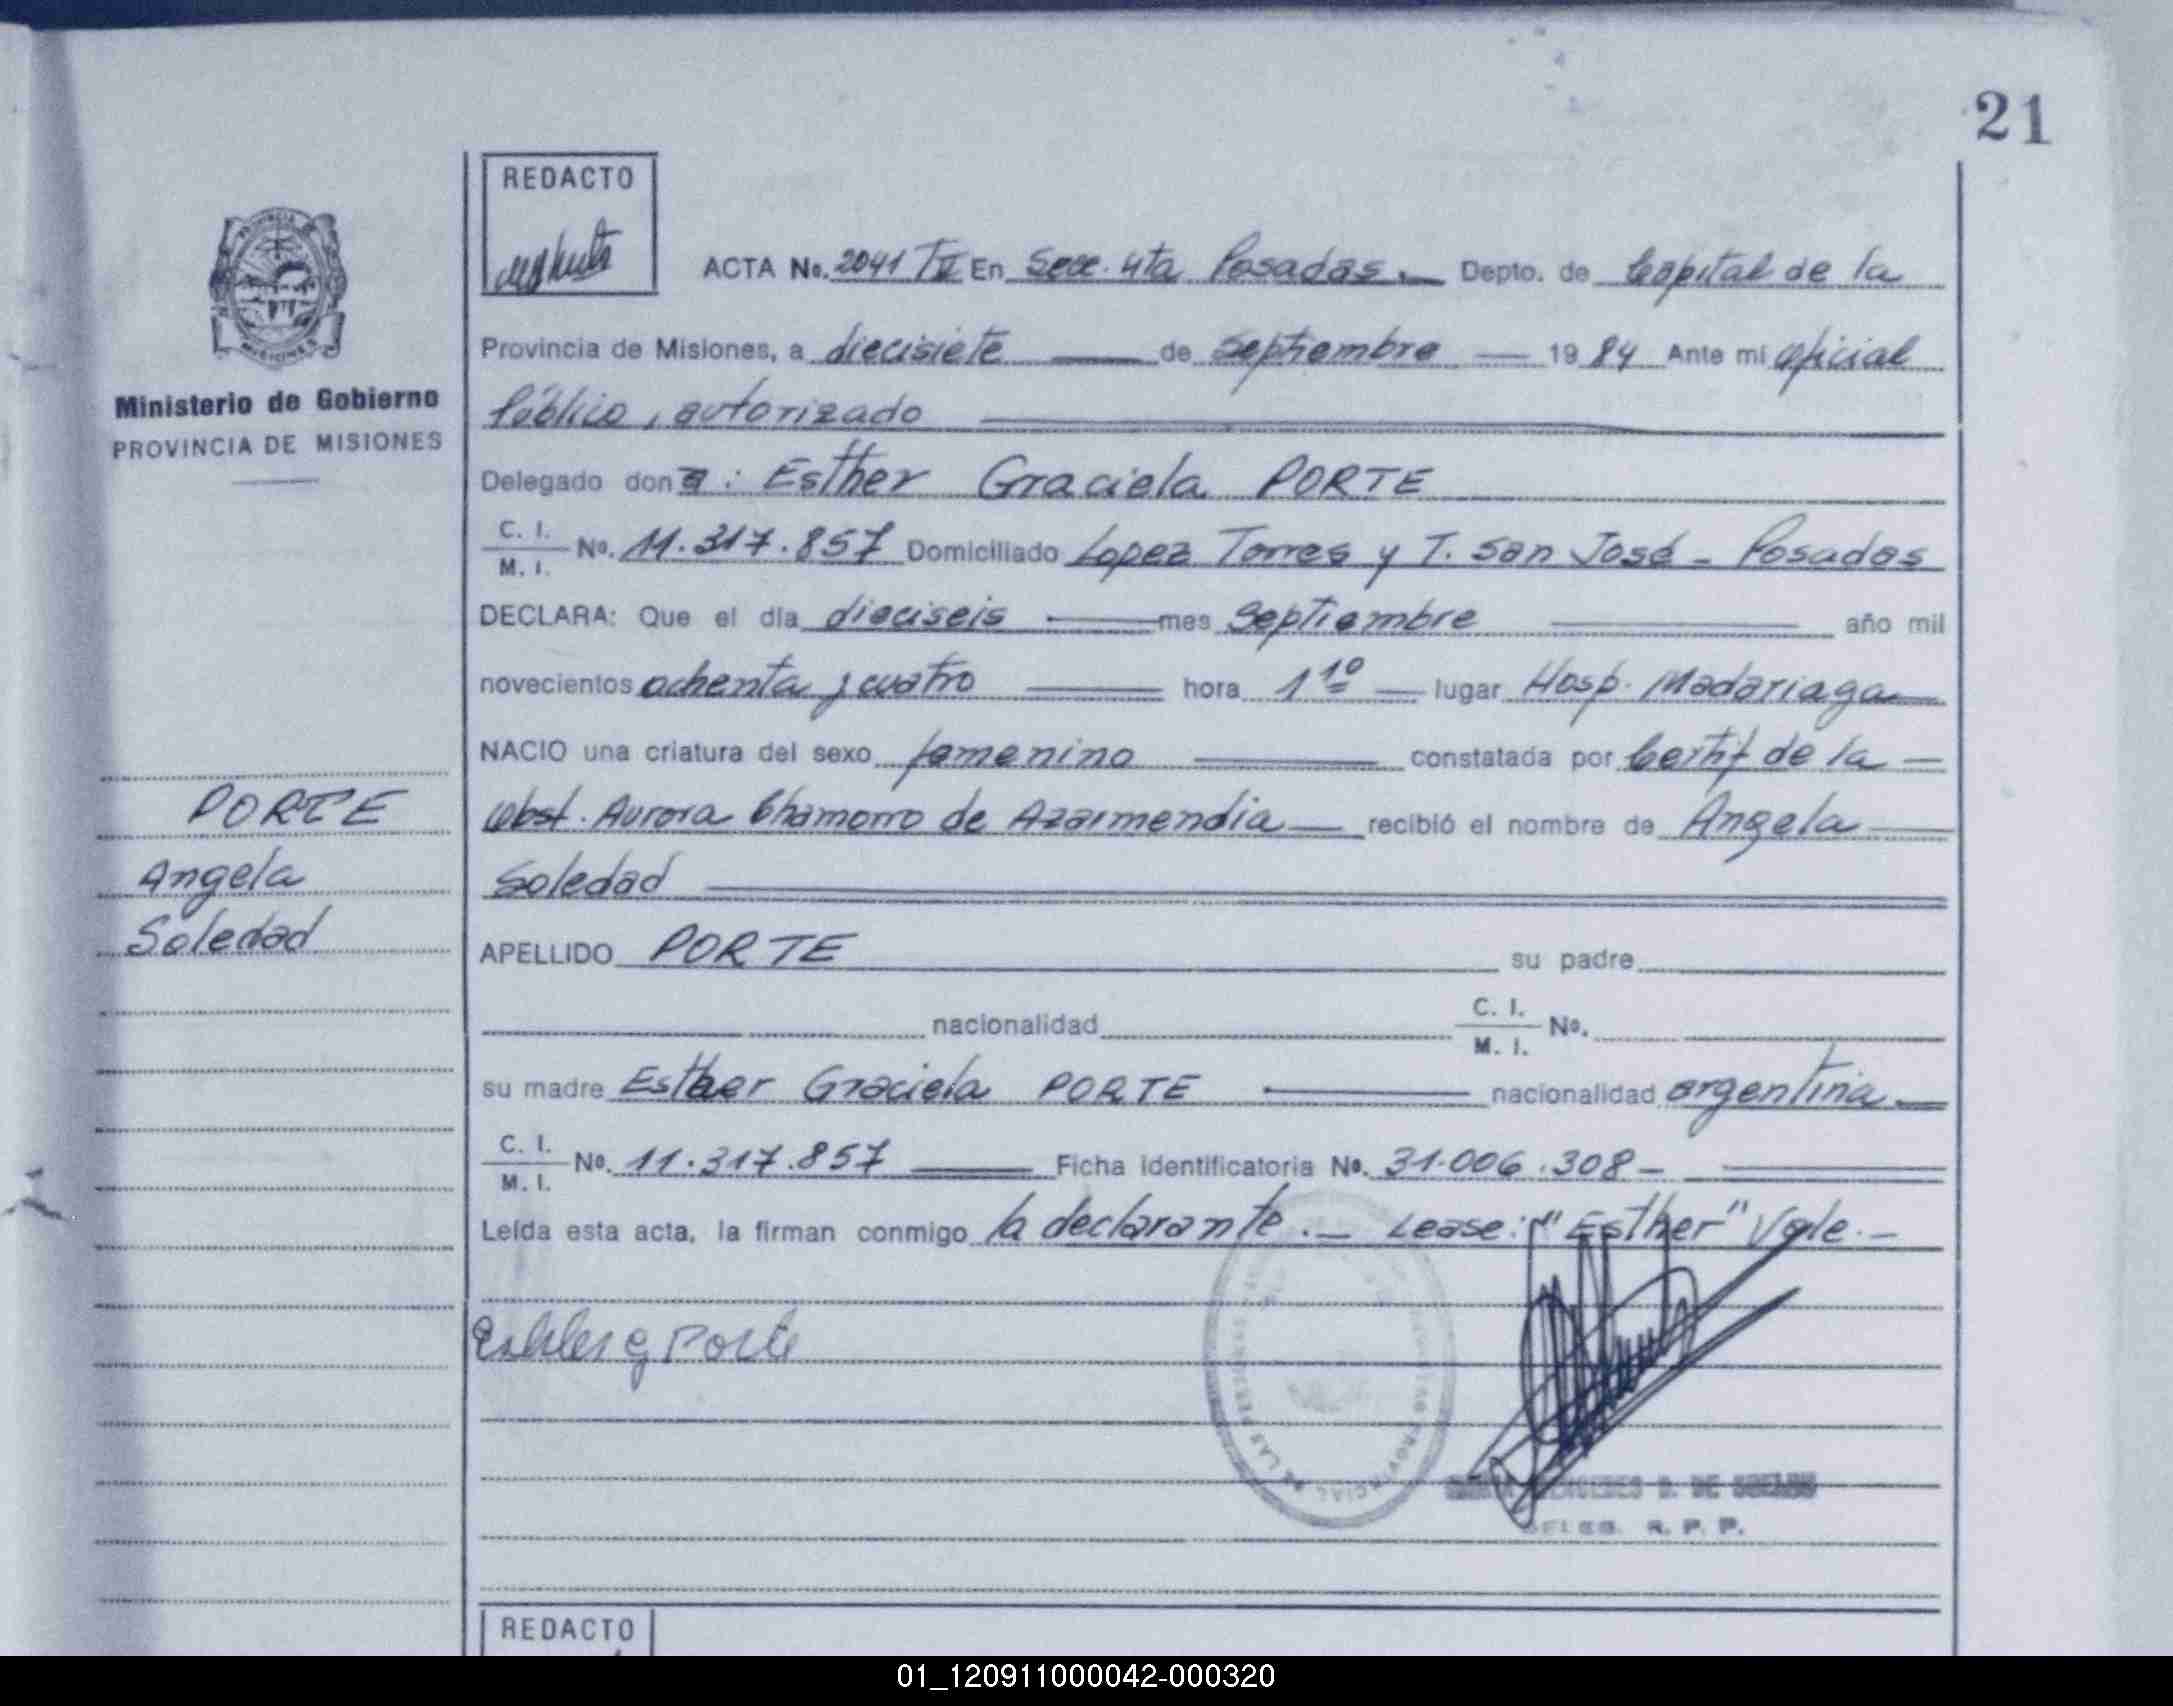 21
REDACTO
PROVINCIA DE
MISIONES
Ministerio de Gobierno
PROVINCIA DE MISIONES
ACTA No. 2041 TII En Secc. 4ta Posadas.— Depto. de Capital de la
Provincia de Misiones, a diecisiete — de Septiembre — 1984 Ante mi oficial
Público, autorizado
Delegado doña: Esther Graciela PORTE
C. I.
M. I. No. 11.317.857 Domiciliado Lopez Torres y T. San José - Posadas
DECLARA: Que el día dieciseis — mes Septiembre — año mil
novecientos ochenta y cuatro — hora 1 10 — lugar Hosp. Madariaga
NACIO una criatura del sexo femenino — constatada por Certif de la —
Obst. Aurora Chamorro de Azarmendia — recibió el nombre de Angela —
Soledad
APELLIDO PORTE su padre
nacionalidad C. I.
M. I. No.
su madre Esther Graciela PORTE — nacionalidad argentina.—
C. I.
M. I. No. 11.317.857 — Ficha identificatoria No. 31.006.308 —
Leída esta acta, la firman conmigo la declarante.— Lease: "Esther" Vale.—
Esther G Porte
DE
DELEG. R. P. P.
PORTE
Angela
Soledad
REDACTO
01_120911000042-000320